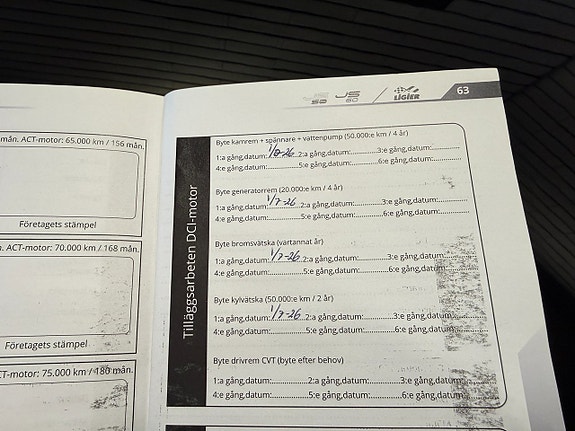 mån. ACT-motor: 65.000 km / 156 mån.
Företagets stämpel
n. ACT-motor: 70.000 km / 168 mån.
Företagets stämpel
CT-motor: 75.000 km / 180 mån.
JS50 JS60 LIGIER 63
Tilläggsarbeten DCI-motor
Byte kamrem + spännare + vattenpump (50.000:e km / 4 år)
1:a gång,datum: 1/8-26 2:a gång,datum:............3:e gång,datum:............
4:e gång,datum:............5:e gång,datum:............6:e gång,datum:............
Byte generatorrem (20.000:e km / 4 år)
1:a gång,datum: 1/7-26 2:a gång,datum:............3:e gång,datum:............
4:e gång,datum:............5:e gång,datum:............6:e gång,datum:............
Byte bromsvätska (vartannat år)
1:a gång,datum: 1/7-26 2:a gång,datum:............3:e gång,datum:............
4:e gång,datum:............5:e gång,datum:............6:e gång,datum:............
Byte kylvätska (50.000:e km / 2 år)
1:a gång,datum: 1/7-26 2:a gång,datum:............3:e gång,datum:............
4:e gång,datum:............5:e gång,datum:............6:e gång,datum:............
Byte drivrem CVT (byte efter behov)
1:a gång,datum:............2:a gång,datum:............3:e gång,datum:............
4:e gång,datum:............5:e gång,datum:............6:e gång,datum:............